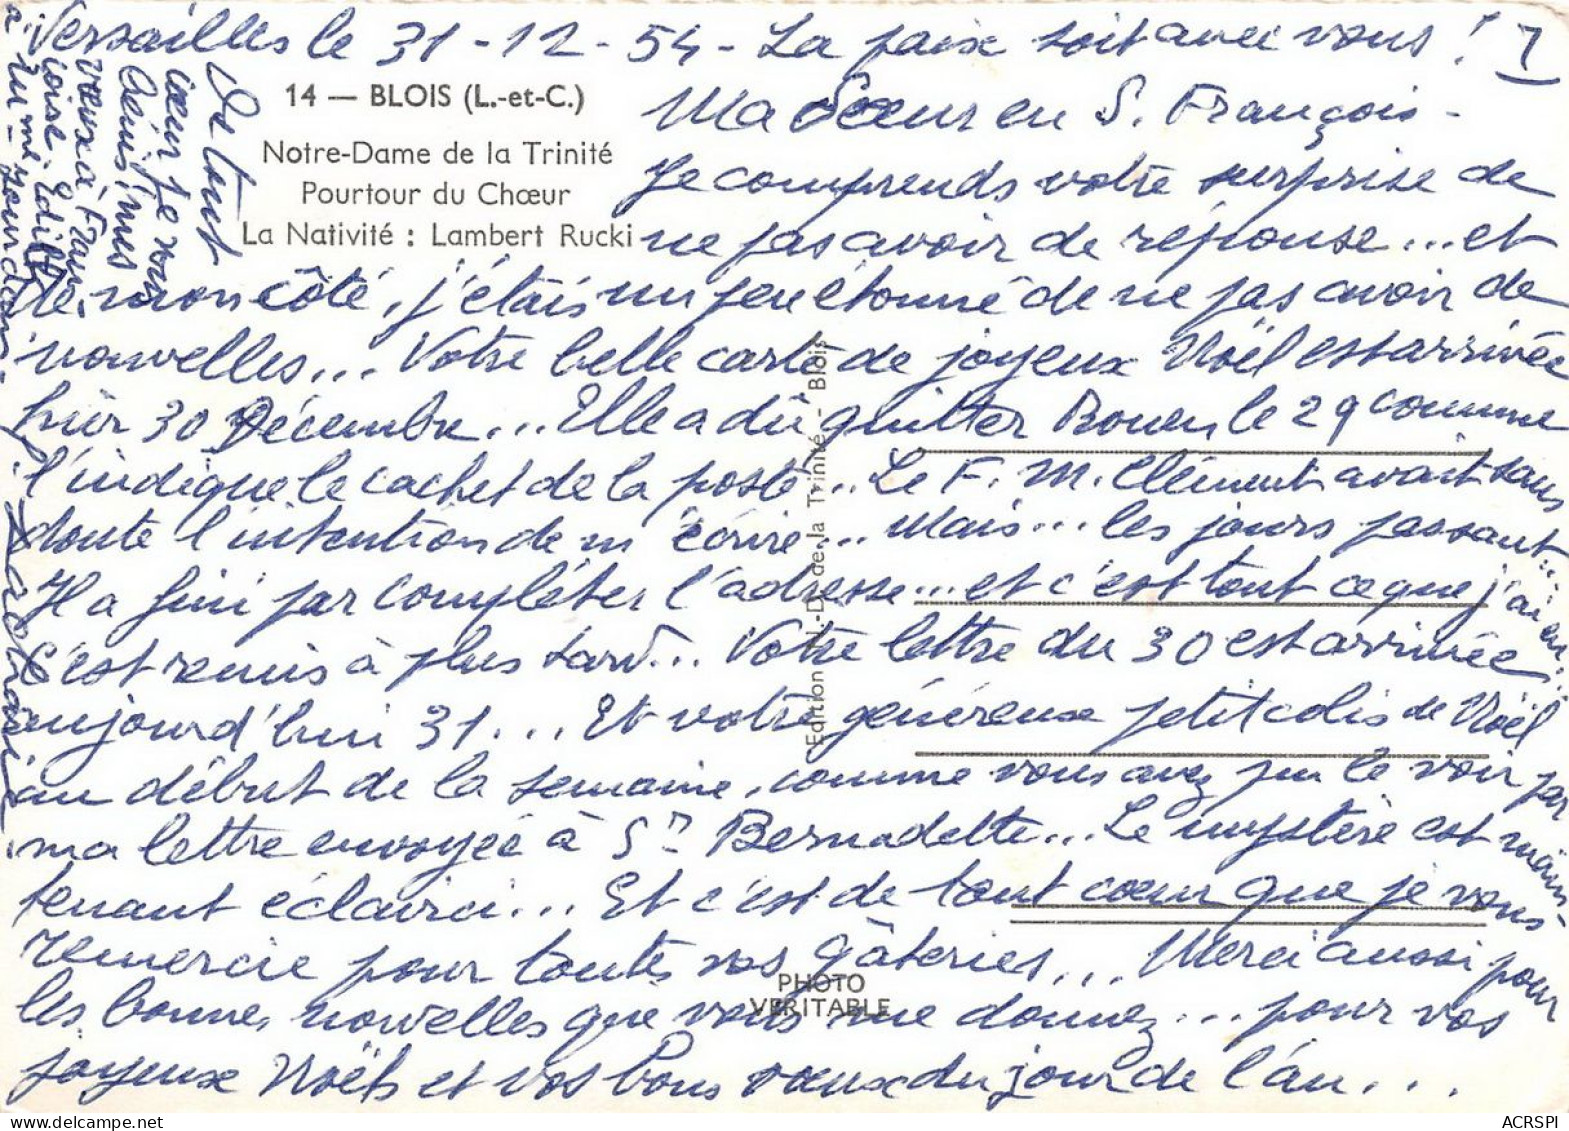 Versailles le 31-12-54 - La paix soit avec vous !
14 — BLOIS (L.-et-C.)
Notre-Dame de la Trinité
Pourtour du Chœur
La Nativité : Lambert Rucki
Ma Sœur en S. François -
Je comprends votre surprise de
ne pas avoir de réponse... et
de mon côté, j'étais un peu étonné de ne pas avoir de
nouvelles... Votre belle carte de joyeux Noël est arrivée
hier 30 Décembre... Elle a dû quitter Rouen le 29 comme
l'indique le cachet de la poste... Le F. M. Clément avait sans
doute l'intention de m'écrire... Mais... les jours passant...
Il a fini par compléter l'adresse... et c'est tout ce que j'ai eu...
C'est remis à plus tard... Votre lettre du 30 est arrivée
aujourd'hui 31... Et votre généreux petit colis de Noël
au début de la semaine, comme vous avez pu le voir par
ma lettre envoyée à Sr Bernadette... Le mystère est main-
tenant éclairci... Et c'est de tout cœur que je vous
remercie pour toutes vos gâteries... Merci aussi pour
les bonnes nouvelles que vous me donnez... pour vos
joyeux Noëls et vos bons vœux du jour de l'an...
De tout
cœur je vous
vœux à Fran
çoise, Edith
Edition N.-D. de la Trinité - Blois
PHOTO
VERITABLE
ACRSPI